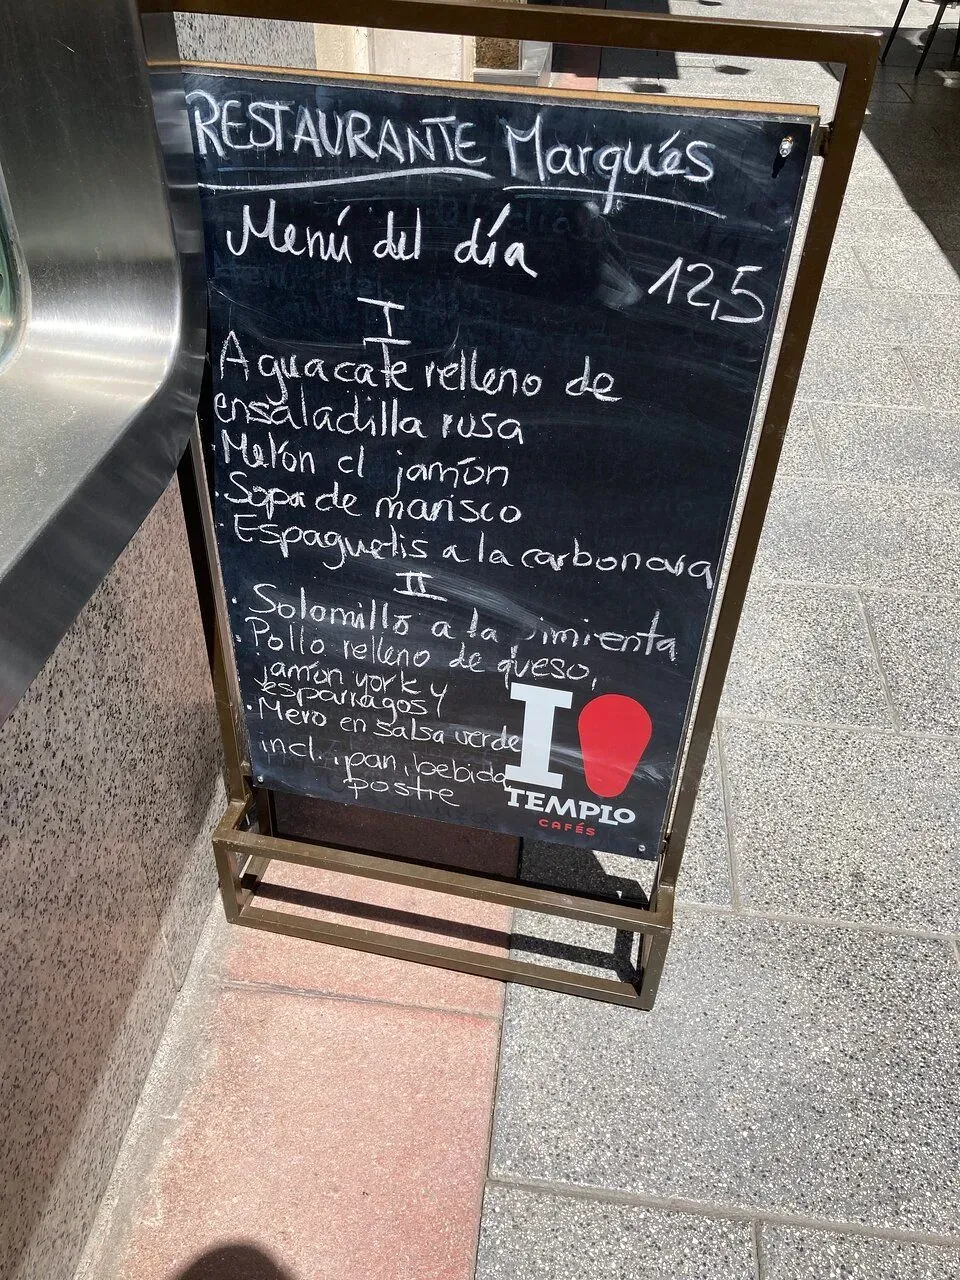 RESTAURANTE Marqués
Menú del día
12,5
I
Aguacate relleno de
ensaladilla rusa
· Melón c/ jamón
· Sopa de marisco
· Espaguetis a la carbonara
II
· Solomillo a la pimienta
· Pollo relleno de queso,
jamón york y
espárragos
· Mero en salsa verde
incl. pan, bebida,
postre
I
TEMPLO
CAFÉS